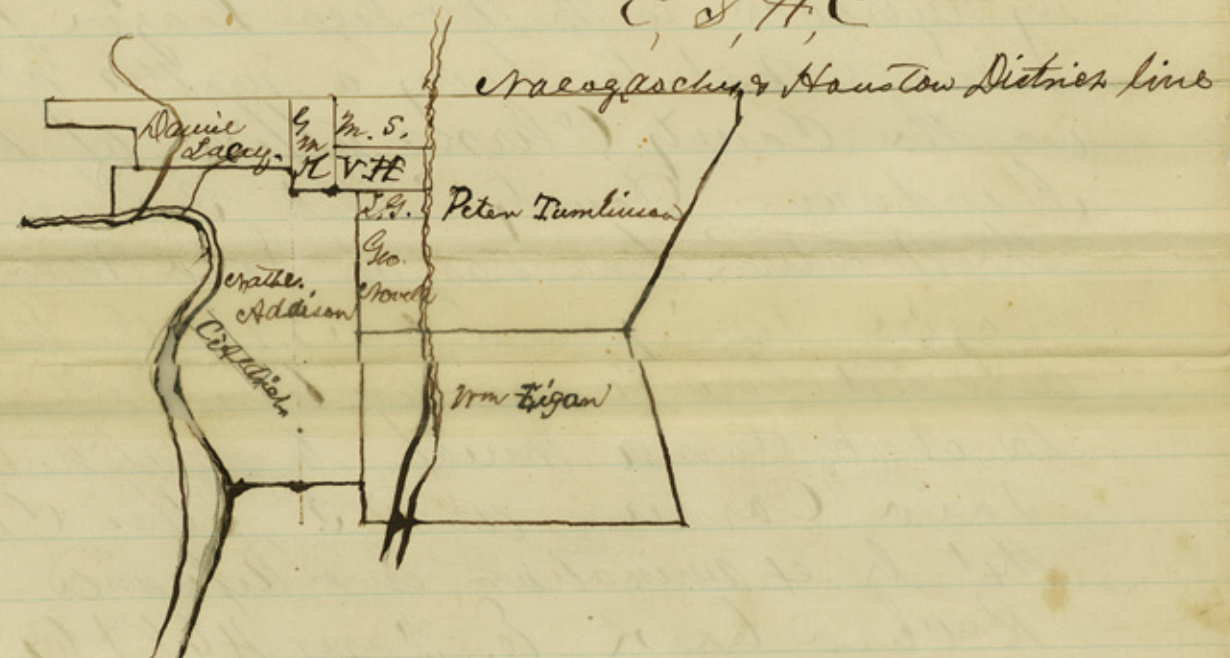 C, S, H, C
Nacogdoches & Houston District line
Daniel
Lacey.
G
M
H
M. S.
V H
I. G.
Peter Tumlinson
Geo.
Nathl.
Addison
Wm Zigan